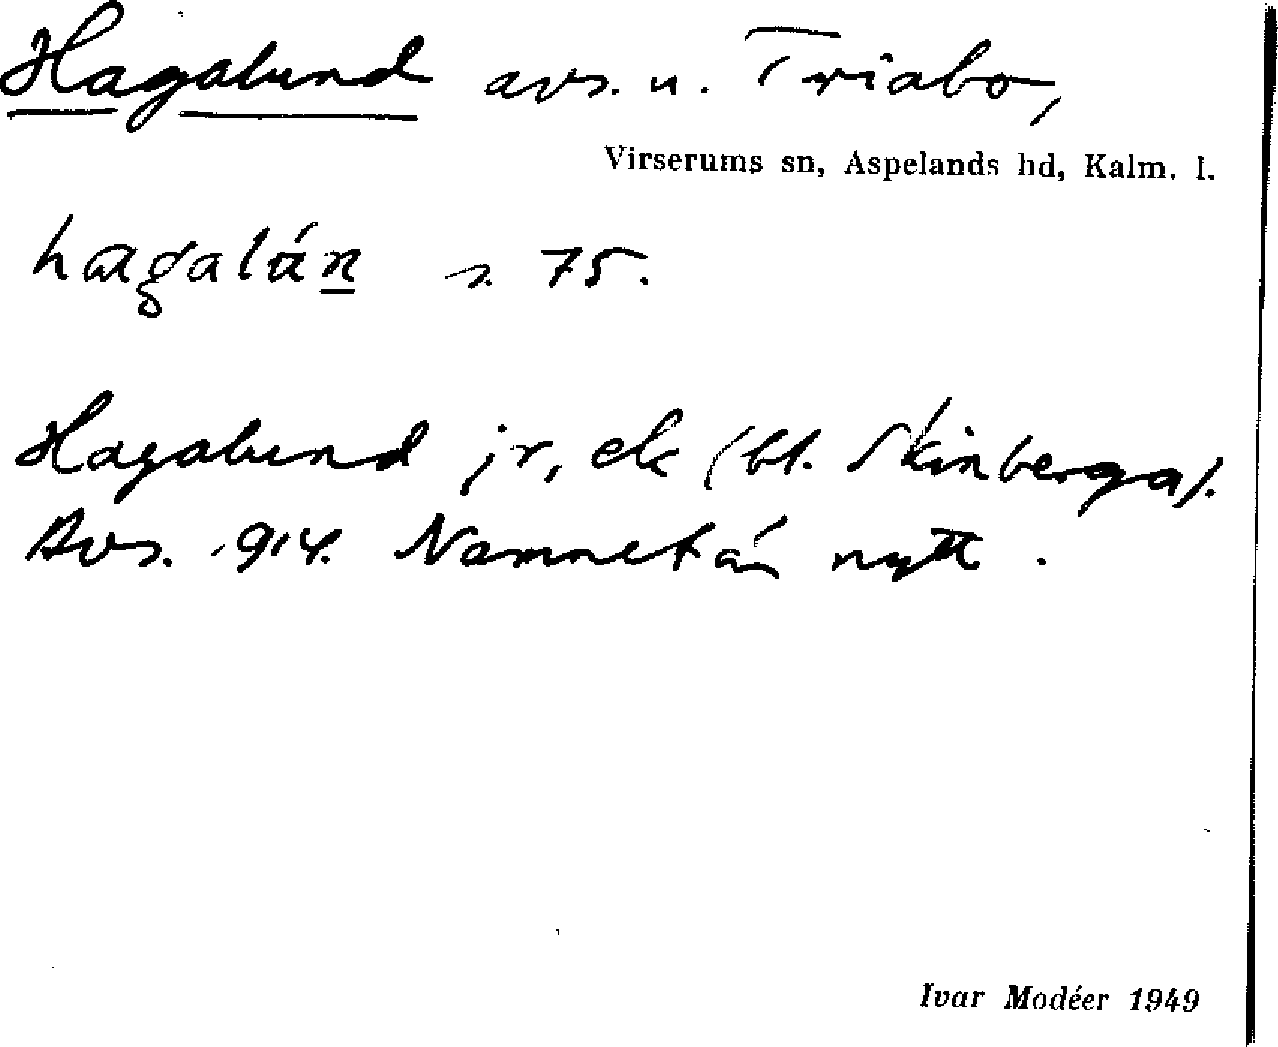 Hagalund avs. u. Triabo,
Virserums sn, Aspelands hd, Kalm. l.
hagalún s. 75.
Hagalund jr, ek (bl. Skinberga).
Avs. 1914. Namnet är nytt.
Ivar Modéer 1949